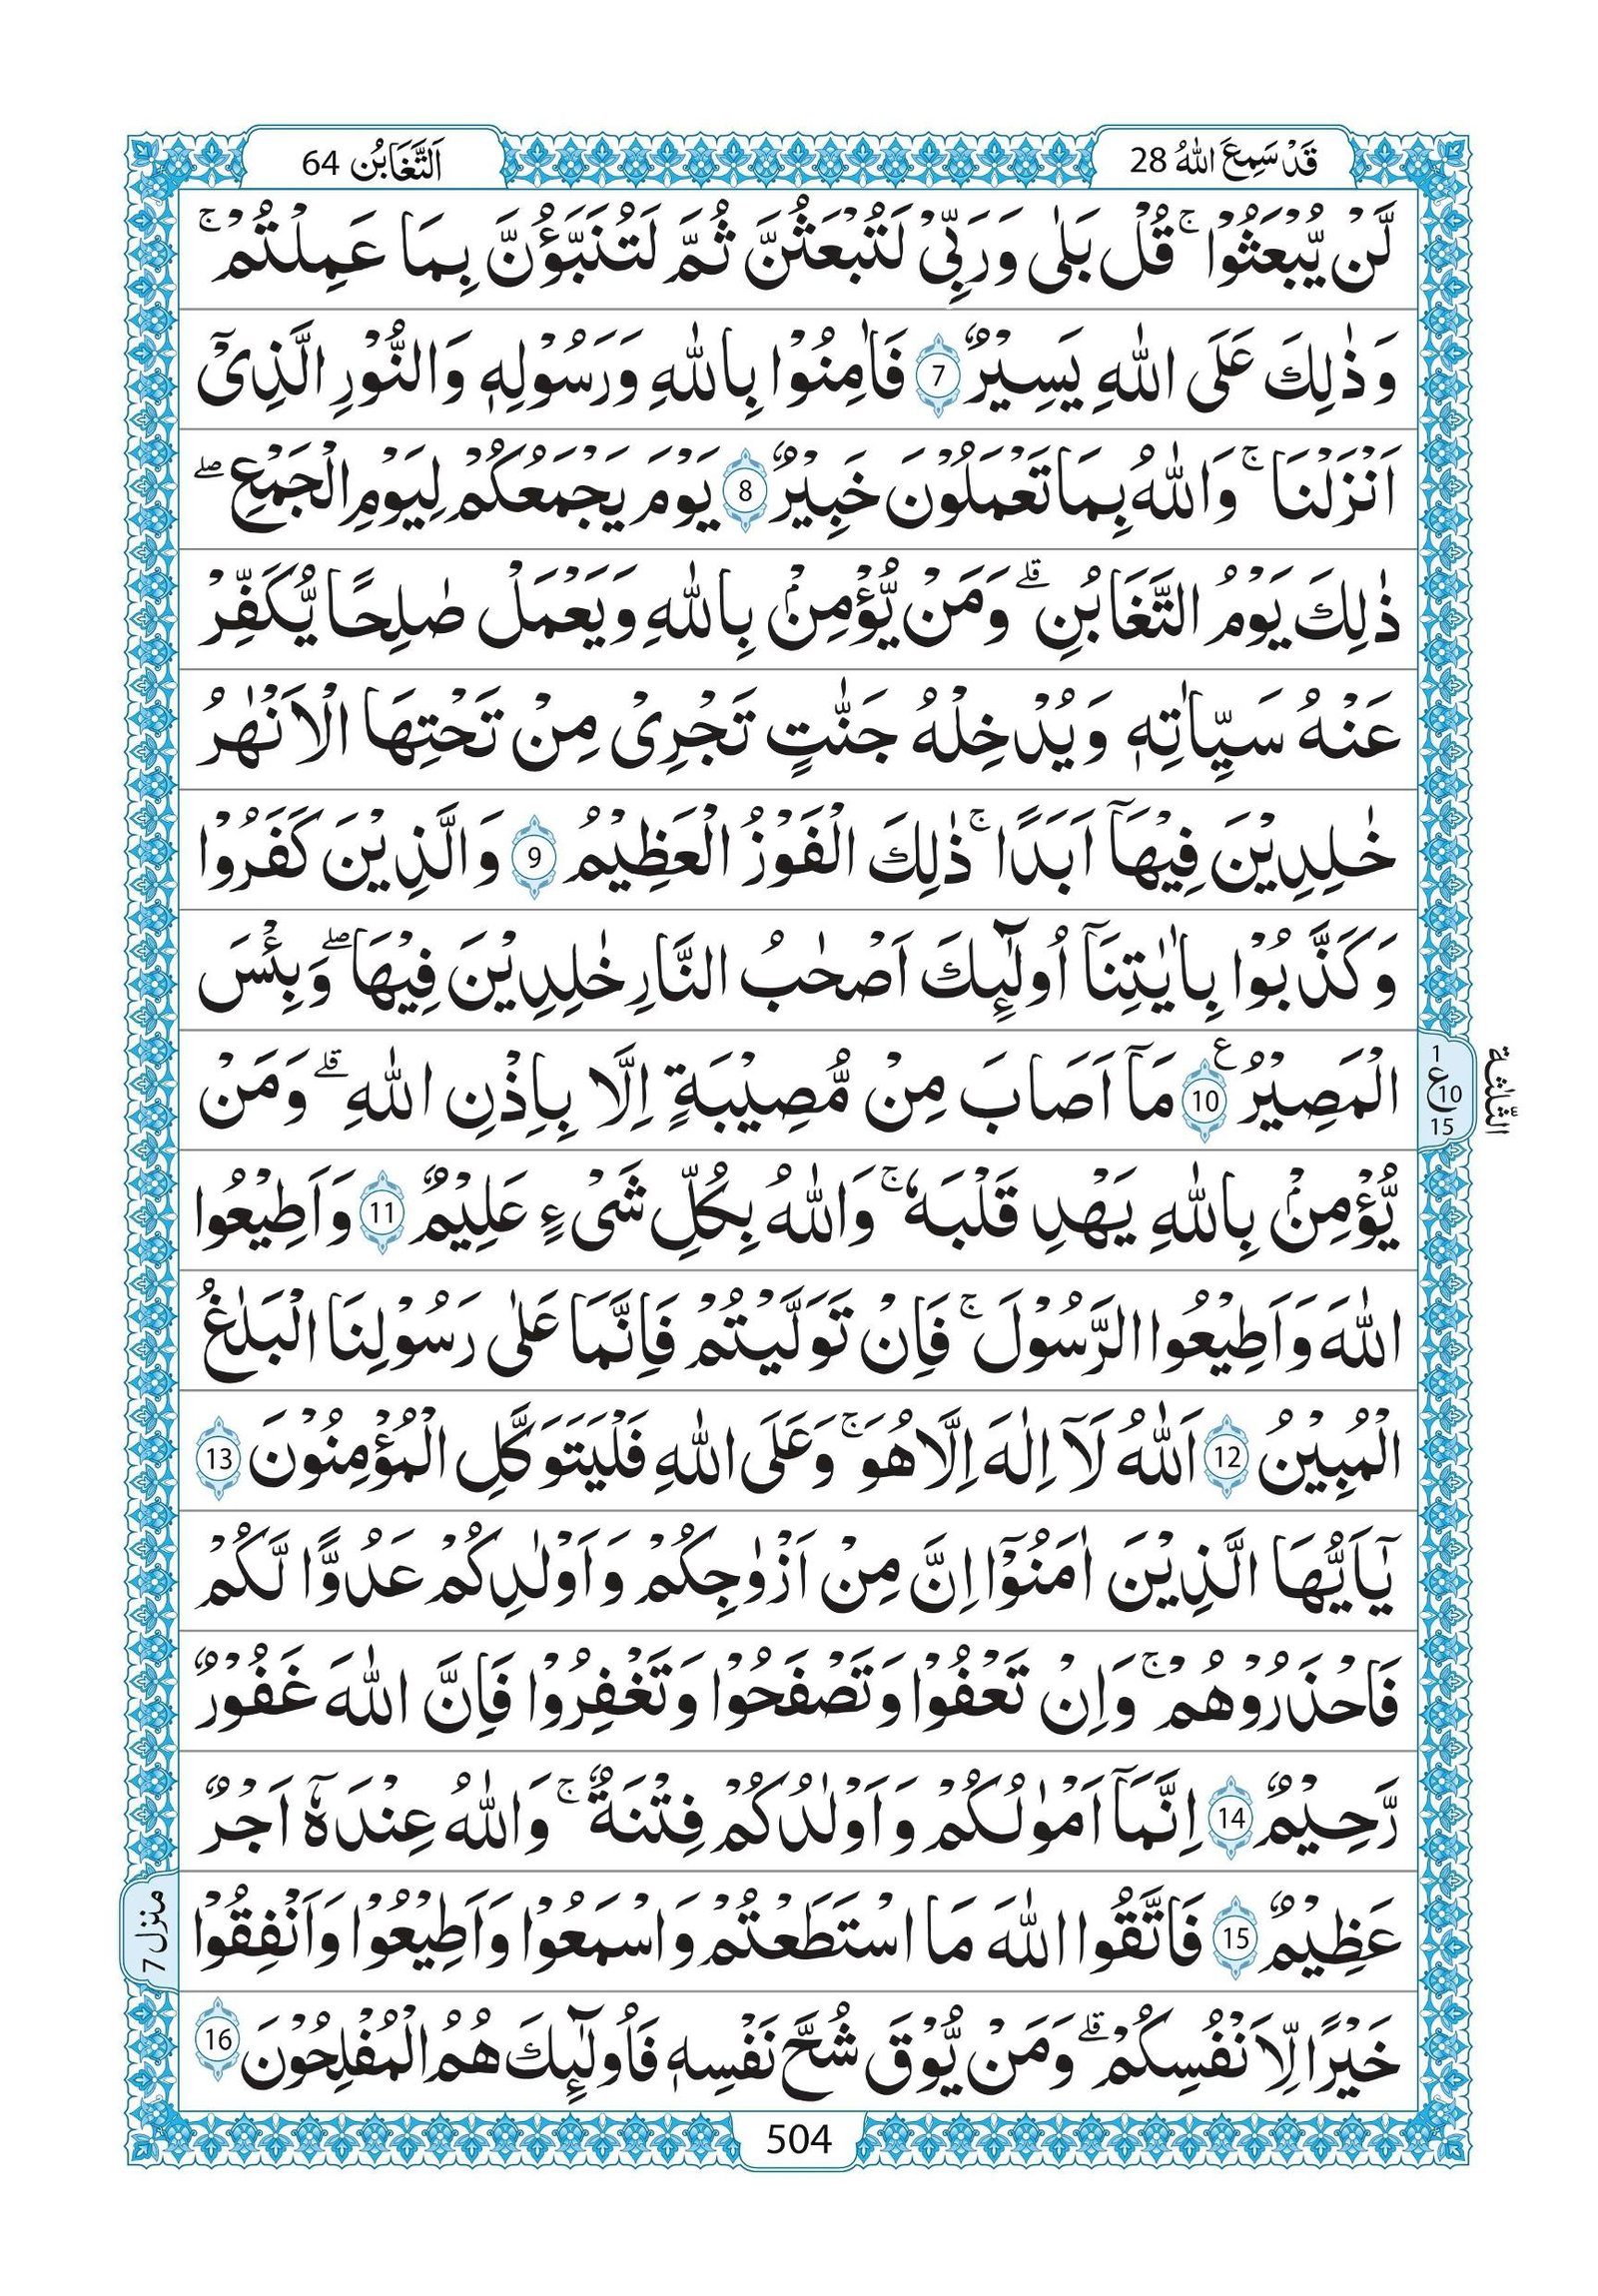 قَدْ سَمِعَ اللّٰهُ 28
اَلتَّغَابُن 64
لَّنْ يُّبْعَثُوْا ۚ قُلْ بَلٰى وَرَبِّىْ لَتُبْعَثُنَّ ثُمَّ لَتُنَبَّؤُنَّ بِمَا عَمِلْتُمْ ۚ
وَذٰلِكَ عَلَى اللّٰهِ يَسِيْرٌ 7 فَاٰمِنُوْا بِاللّٰهِ وَرَسُوْلِهٖ وَالنُّوْرِ الَّذِىْۤ
اَنْزَلْنَا ۚ وَاللّٰهُ بِمَا تَعْمَلُوْنَ خَبِيْرٌ 8 يَوْمَ يَجْمَعُكُمْ لِيَوْمِ الْجَمْعِ ۖ
ذٰلِكَ يَوْمُ التَّغَابُنِ ۗ وَمَنْ يُّؤْمِنْۢ بِاللّٰهِ وَيَعْمَلْ صٰلِحًا يُّكَفِّرْ
عَنْهُ سَيِّاٰتِهٖ وَيُدْخِلْهُ جَنّٰتٍ تَجْرِىْ مِنْ تَحْتِهَا الْاَنْهٰرُ
خٰلِدِيْنَ فِيْهَاۤ اَبَدًا ۚ ذٰلِكَ الْفَوْزُ الْعَظِيْمُ 9 وَالَّذِيْنَ كَفَرُوْا
وَكَذَّبُوْا بِاٰيٰتِنَاۤ اُولٰٓئِكَ اَصْحٰبُ النَّارِ خٰلِدِيْنَ فِيْهَا ۖ وَبِئْسَ
الْمَصِيْرُ ع 10 مَاۤ اَصَابَ مِنْ مُّصِيْبَةٍ اِلَّا بِاِذْنِ اللّٰهِ ۗ وَمَنْ
يُّؤْمِنْۢ بِاللّٰهِ يَهْدِ قَلْبَهٗ ۚ وَاللّٰهُ بِكُلِّ شَىْءٍ عَلِيْمٌ 11 وَاَطِيْعُوا
اللّٰهَ وَاَطِيْعُوا الرَّسُوْلَ ۚ فَاِنْ تَوَلَّيْتُمْ فَاِنَّمَا عَلٰى رَسُوْلِنَا الْبَلٰغُ
الْمُبِيْنُ 12 اَللّٰهُ لَاۤ اِلٰهَ اِلَّا هُوَ ۚ وَعَلَى اللّٰهِ فَلْيَتَوَكَّلِ الْمُؤْمِنُوْنَ 13
يٰۤاَيُّهَا الَّذِيْنَ اٰمَنُوْۤا اِنَّ مِنْ اَزْوٰجِكُمْ وَاَوْلٰدِكُمْ عَدُوًّا لَّكُمْ
فَاحْذَرُوْهُمْ ۚ وَاِنْ تَعْفُوْا وَتَصْفَحُوْا وَتَغْفِرُوْا فَاِنَّ اللّٰهَ غَفُوْرٌ
رَّحِيْمٌ 14 اِنَّمَاۤ اَمْوٰلُكُمْ وَاَوْلٰدُكُمْ فِتْنَةٌ ۚ وَاللّٰهُ عِنْدَهٗۤ اَجْرٌ
عَظِيْمٌ 15 فَاتَّقُوا اللّٰهَ مَا اسْتَطَعْتُمْ وَاسْمَعُوْا وَاَطِيْعُوْا وَاَنْفِقُوْا
خَيْرًا لِّاَنْفُسِكُمْ ۗ وَمَنْ يُّوْقَ شُحَّ نَفْسِهٖ فَاُولٰٓئِكَ هُمُ الْمُفْلِحُوْنَ 16
1
ع 10
15
الثّلٰثة
منزل 7
504